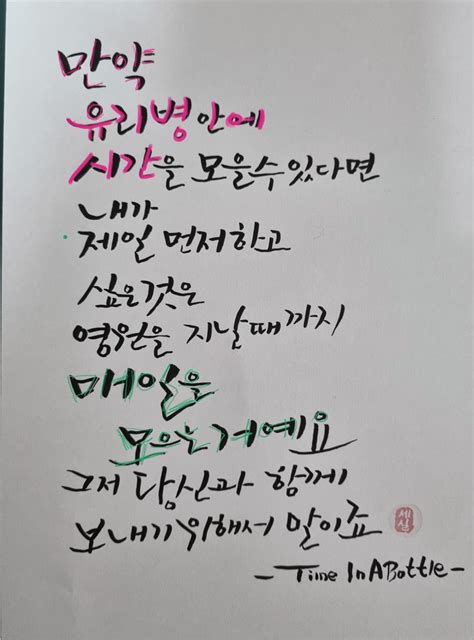 만약
유리병안에
시간을 모을수있다면
내가
제일 먼저하고
싶은것은
영원을 지날때까지
매일을
모으는거예요
그저 당신과 함께
보내기위해서 말이죠
- Time In A Bottle -